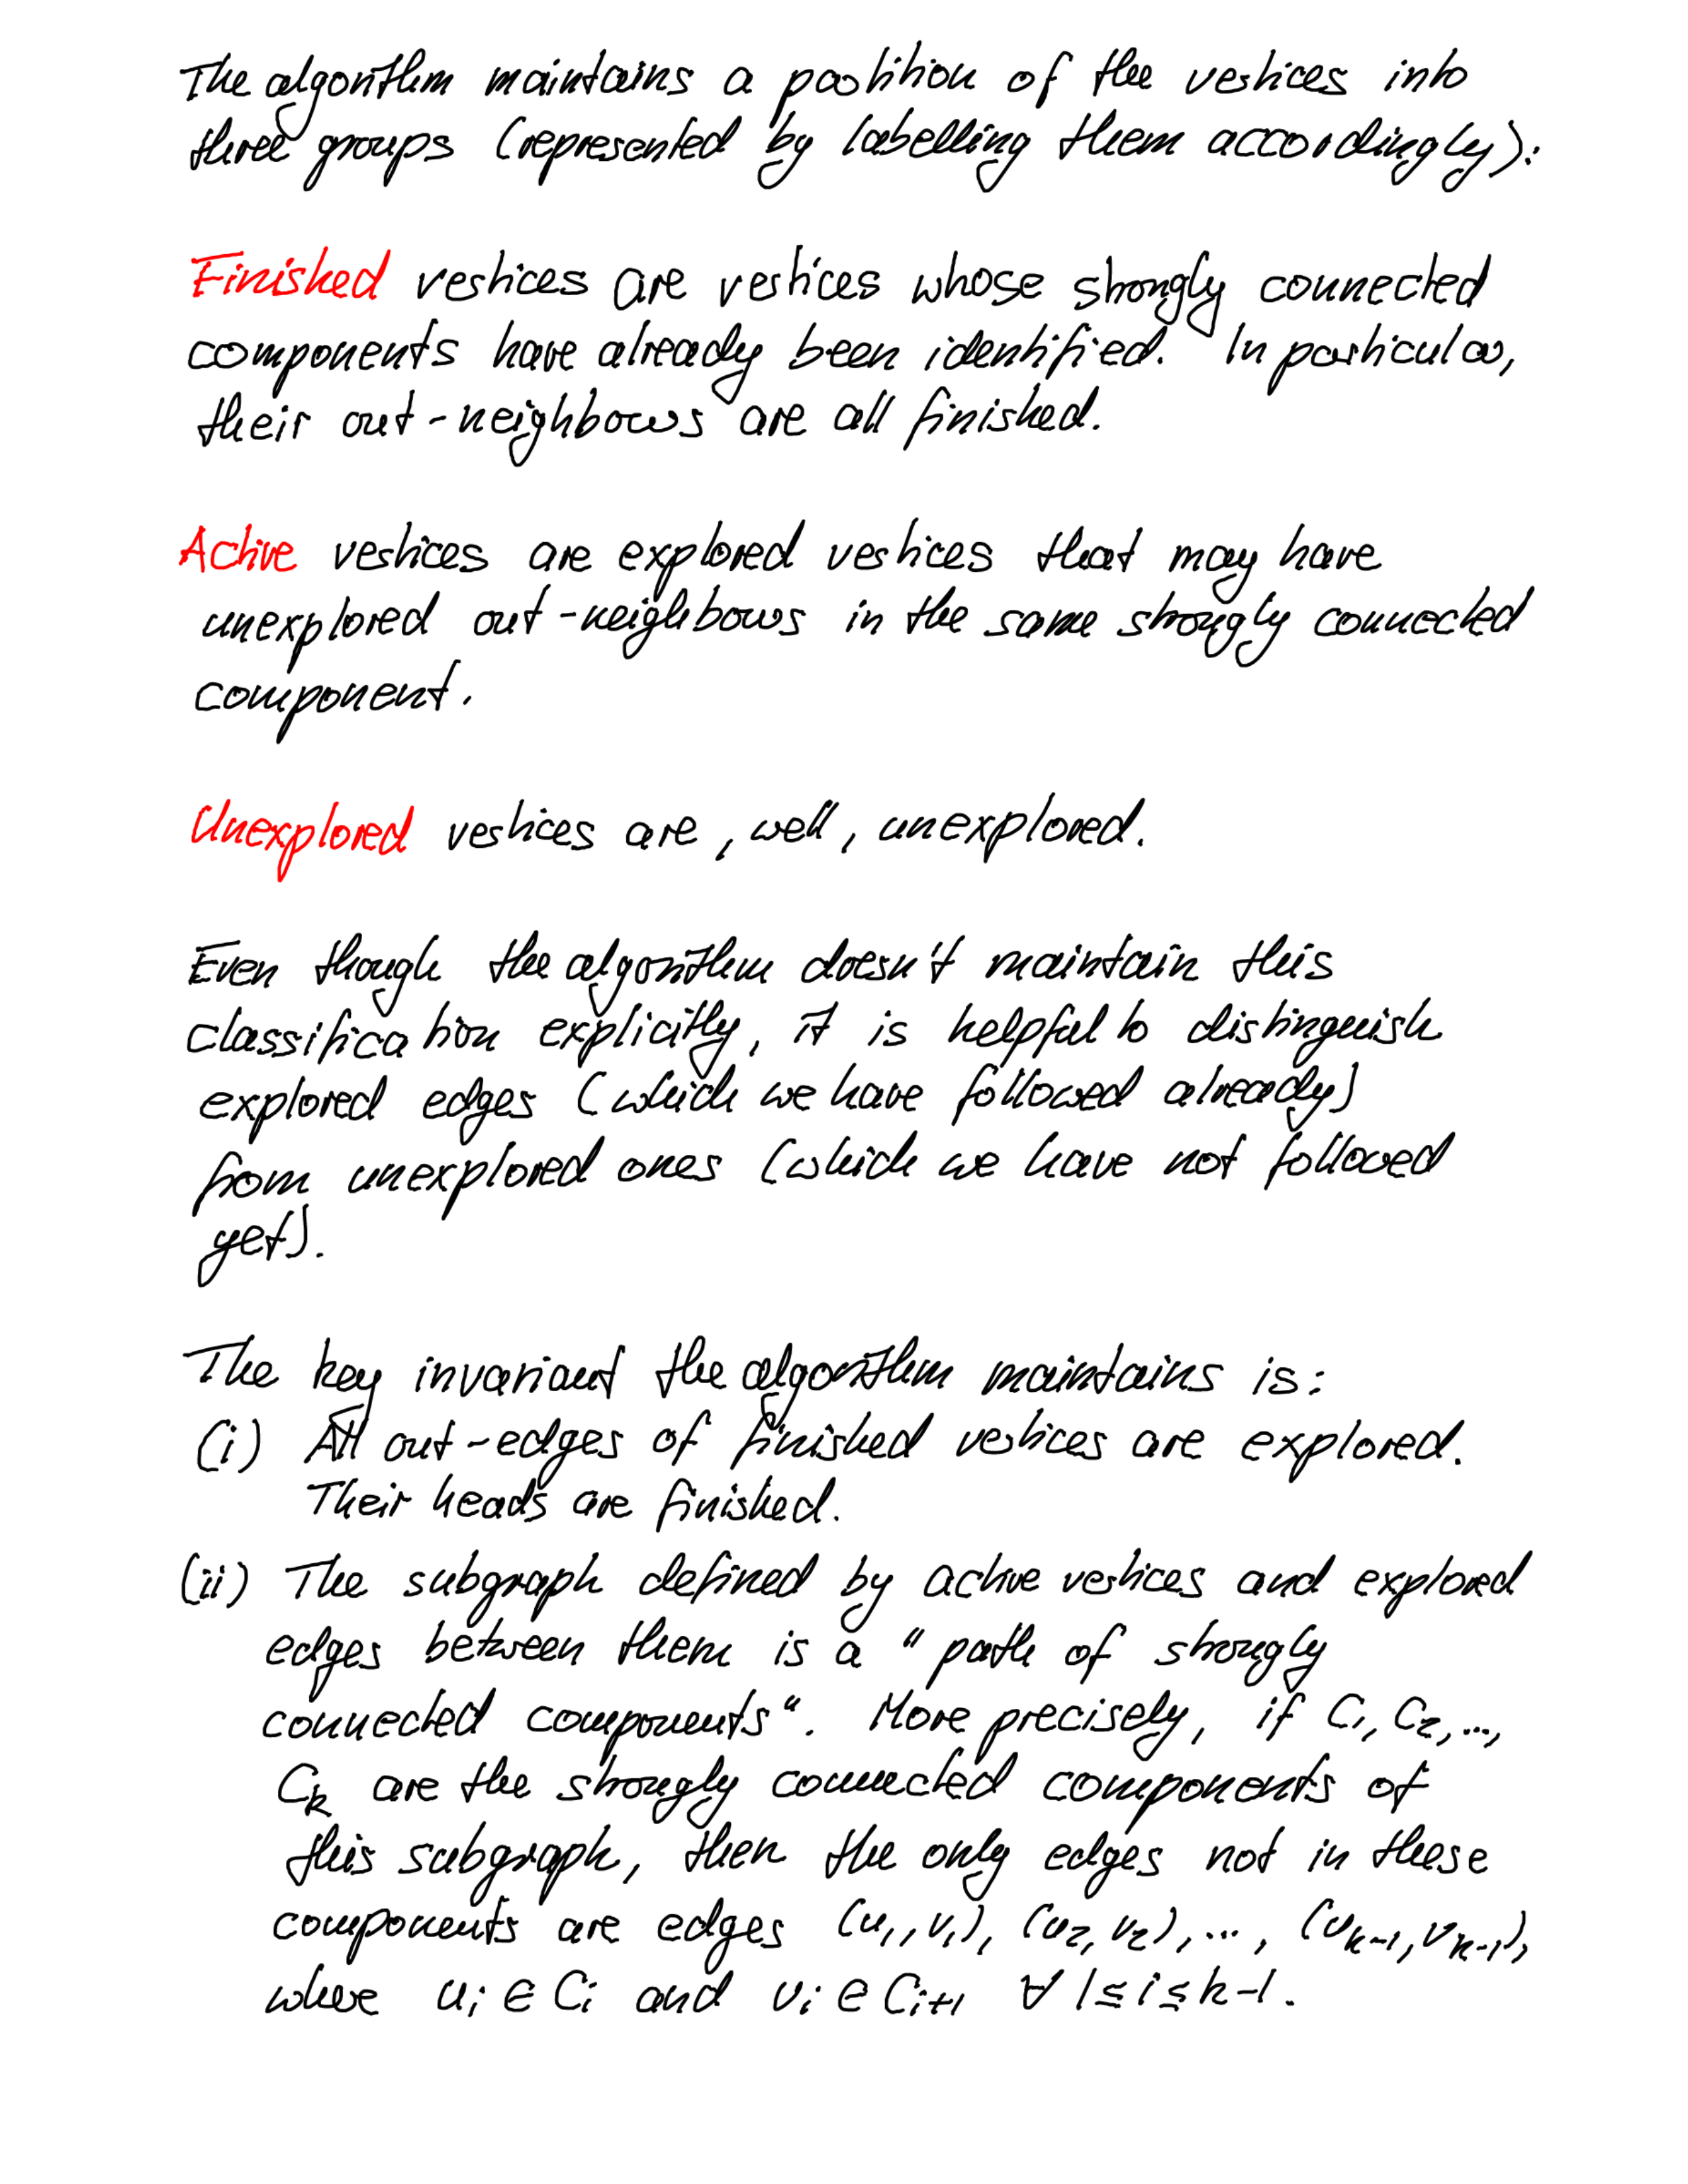 The algorithm maintains a partition of the vertices into
three groups (represented by labelling them accordingly):
Finished vertices are vertices whose strongly connected
components have already been identified. In particular,
their out-neighbours are all finished.
Active vertices are explored vertices that may have
unexplored out-neighbours in the same strongly connected
component.
Unexplored vertices are, well, unexplored.
Even though the algorithm doesn't maintain this
classification explicitly, it is helpful to distinguish
explored edges (which we have followed already)
from unexplored ones (which we have not followed
yet).
The key invariant the algorithm maintains is:
(i) All out-edges of finished vertices are explored.
Their heads are finished.
(ii) The subgraph defined by active vertices and explored
edges between them is a "path of strongly
connected components". More precisely, if C₁, C₂, ...,
Cₖ are the strongly connected components of
this subgraph, then the only edges not in these
components are edges (u₁, v₁), (u₂, v₂), ..., (uₖ₋₁, vₖ₋₁),
where uᵢ ∈ Cᵢ and vᵢ ∈ Cᵢ₊₁ ∀ 1 ≤ i ≤ k-1.